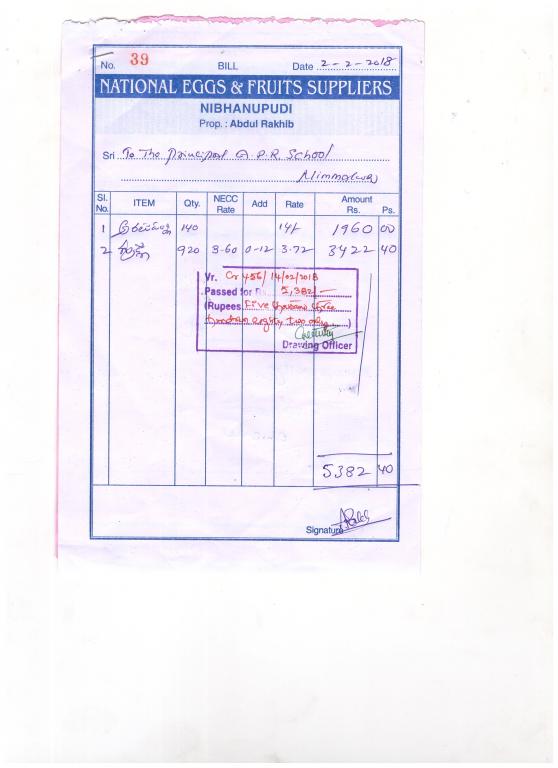 No. 39 BILL Date 2-2-2018
NATIONAL EGGS & FRUITS SUPPLIERS
NIBHANUPUDI
Prop. : Abdul Rakhib
Sri To The Principal A.P.R. School
Nimmakuru
Sl. No. ITEM Qty. NECC Rate Add Rate Amount Rs. Ps.
1 140 14/- 1960 00
2 920 3-60 0-12 3.72 3422 40
Vr. Cr 456/14/02/2018
Passed for Rs. 5,382/-
(Rupees Five thousand three
hundred eighty two only)
Drawing Officer
5382 40
Signature